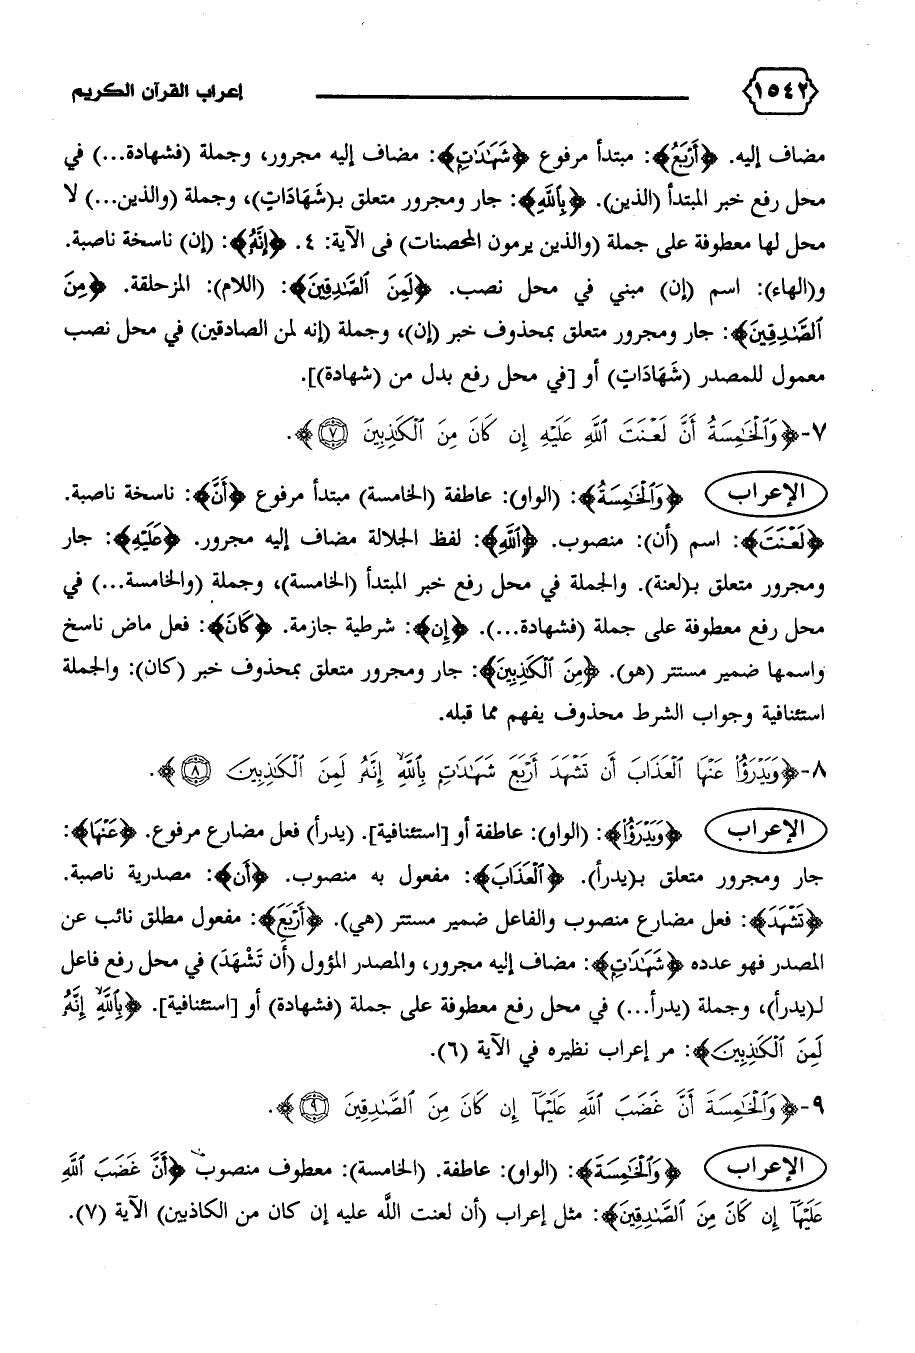 ١٥٤٢ إعراب القرآن الكريم
مضاف إليه. ﴿أَرْبَعُ﴾: مبتدأ مرفوع ﴿شَهَٰدَٰتٍ﴾: مضاف إليه مجرور، وجملة (فشهادة...) في
محل رفع خبر المبتدأ (الذين). ﴿بِٱللَّهِ﴾: جار ومجرور متعلق بـ(شَهَادَاتٍ)، وجملة (والذين...) لا
محل لها معطوفة على جملة (والذين يرمون المحصنات) فى الآية: ٤. ﴿إِنَّهُۥ﴾: (إن) ناسخة ناصبة.
و(الهاء): اسم (إن) مبني في محل نصب. ﴿لَمِنَ ٱلصَّٰدِقِينَ﴾: (اللام): المزحلقة. ﴿مِنَ
ٱلصَّٰدِقِينَ﴾: جار ومجرور متعلق بمحذوف خبر (إن)، وجملة (إنه لمن الصادقين) في محل نصب
معمول للمصدر (شَهَادَاتٍ) أو [في محل رفع بدل من (شهادة)].
٧-﴿وَٱلْخَٰمِسَةُ أَنَّ لَعْنَتَ ٱللَّهِ عَلَيْهِ إِن كَانَ مِنَ ٱلْكَٰذِبِينَ ٧﴾.
الإعراب ﴿وَٱلْخَٰمِسَةُ﴾: (الواو): عاطفة (الخامسة) مبتدأ مرفوع ﴿أَنَّ﴾: ناسخة ناصبة.
﴿لَعْنَتَ﴾: اسم (أن): منصوب. ﴿ٱللَّهِ﴾: لفظ الجلالة مضاف إليه مجرور. ﴿عَلَيْهِ﴾: جار
ومجرور متعلق بـ(لعنة). والجملة في محل رفع خبر المبتدأ (الخامسة)، وجملة (والخامسة...) في
محل رفع معطوفة على جملة (فشهادة...). ﴿إِن﴾: شرطية جازمة. ﴿كَانَ﴾: فعل ماض ناسخ
واسمها ضمير مستتر (هو). ﴿مِنَ ٱلْكَٰذِبِينَ﴾: جار ومجرور متعلق بمحذوف خبر (كان): والجملة
استئنافية وجواب الشرط محذوف يفهم مما قبله.
٨-﴿وَيَدْرَؤُا۟ عَنْهَا ٱلْعَذَابَ أَن تَشْهَدَ أَرْبَعَ شَهَٰدَٰتٍۭ بِٱللَّهِ ۙ إِنَّهُۥ لَمِنَ ٱلْكَٰذِبِينَ ٨﴾.
الإعراب ﴿وَيَدْرَؤُا۟﴾: (الواو): عاطفة أو [استئنافية]. (يدرأ) فعل مضارع مرفوع. ﴿عَنْهَا﴾:
جار ومجرور متعلق بـ(يدرأ). ﴿ٱلْعَذَابَ﴾: مفعول به منصوب. ﴿أَن﴾: مصدرية ناصبة.
﴿تَشْهَدَ﴾: فعل مضارع منصوب والفاعل ضمير مستتر (هي). ﴿أَرْبَعَ﴾: مفعول مطلق نائب عن
المصدر فهو عدده ﴿شَهَٰدَٰتٍ﴾: مضاف إليه مجرور، والمصدر المؤول (أن تَشْهَدَ) في محل رفع فاعل
لـ(يدرأ)، وجملة (يدرأ...) في محل رفع معطوفة على جملة (فشهادة) أو [استئنافية]. ﴿بِٱللَّهِ ۙ إِنَّهُۥ
لَمِنَ ٱلْكَٰذِبِينَ﴾: مر إعراب نظيره في الآية (٦).
٩-﴿وَٱلْخَٰمِسَةَ أَنَّ غَضَبَ ٱللَّهِ عَلَيْهَآ إِن كَانَ مِنَ ٱلصَّٰدِقِينَ ٩﴾.
الإعراب ﴿وَٱلْخَٰمِسَةَ﴾: (الواو): عاطفة. (الخامسة): معطوف منصوب ﴿أَنَّ غَضَبَ ٱللَّهِ
عَلَيْهَآ إِن كَانَ مِنَ ٱلصَّٰدِقِينَ﴾: مثل إعراب (أن لعنت اللَّه عليه إن كان من الكاذبين) الآية (٧).